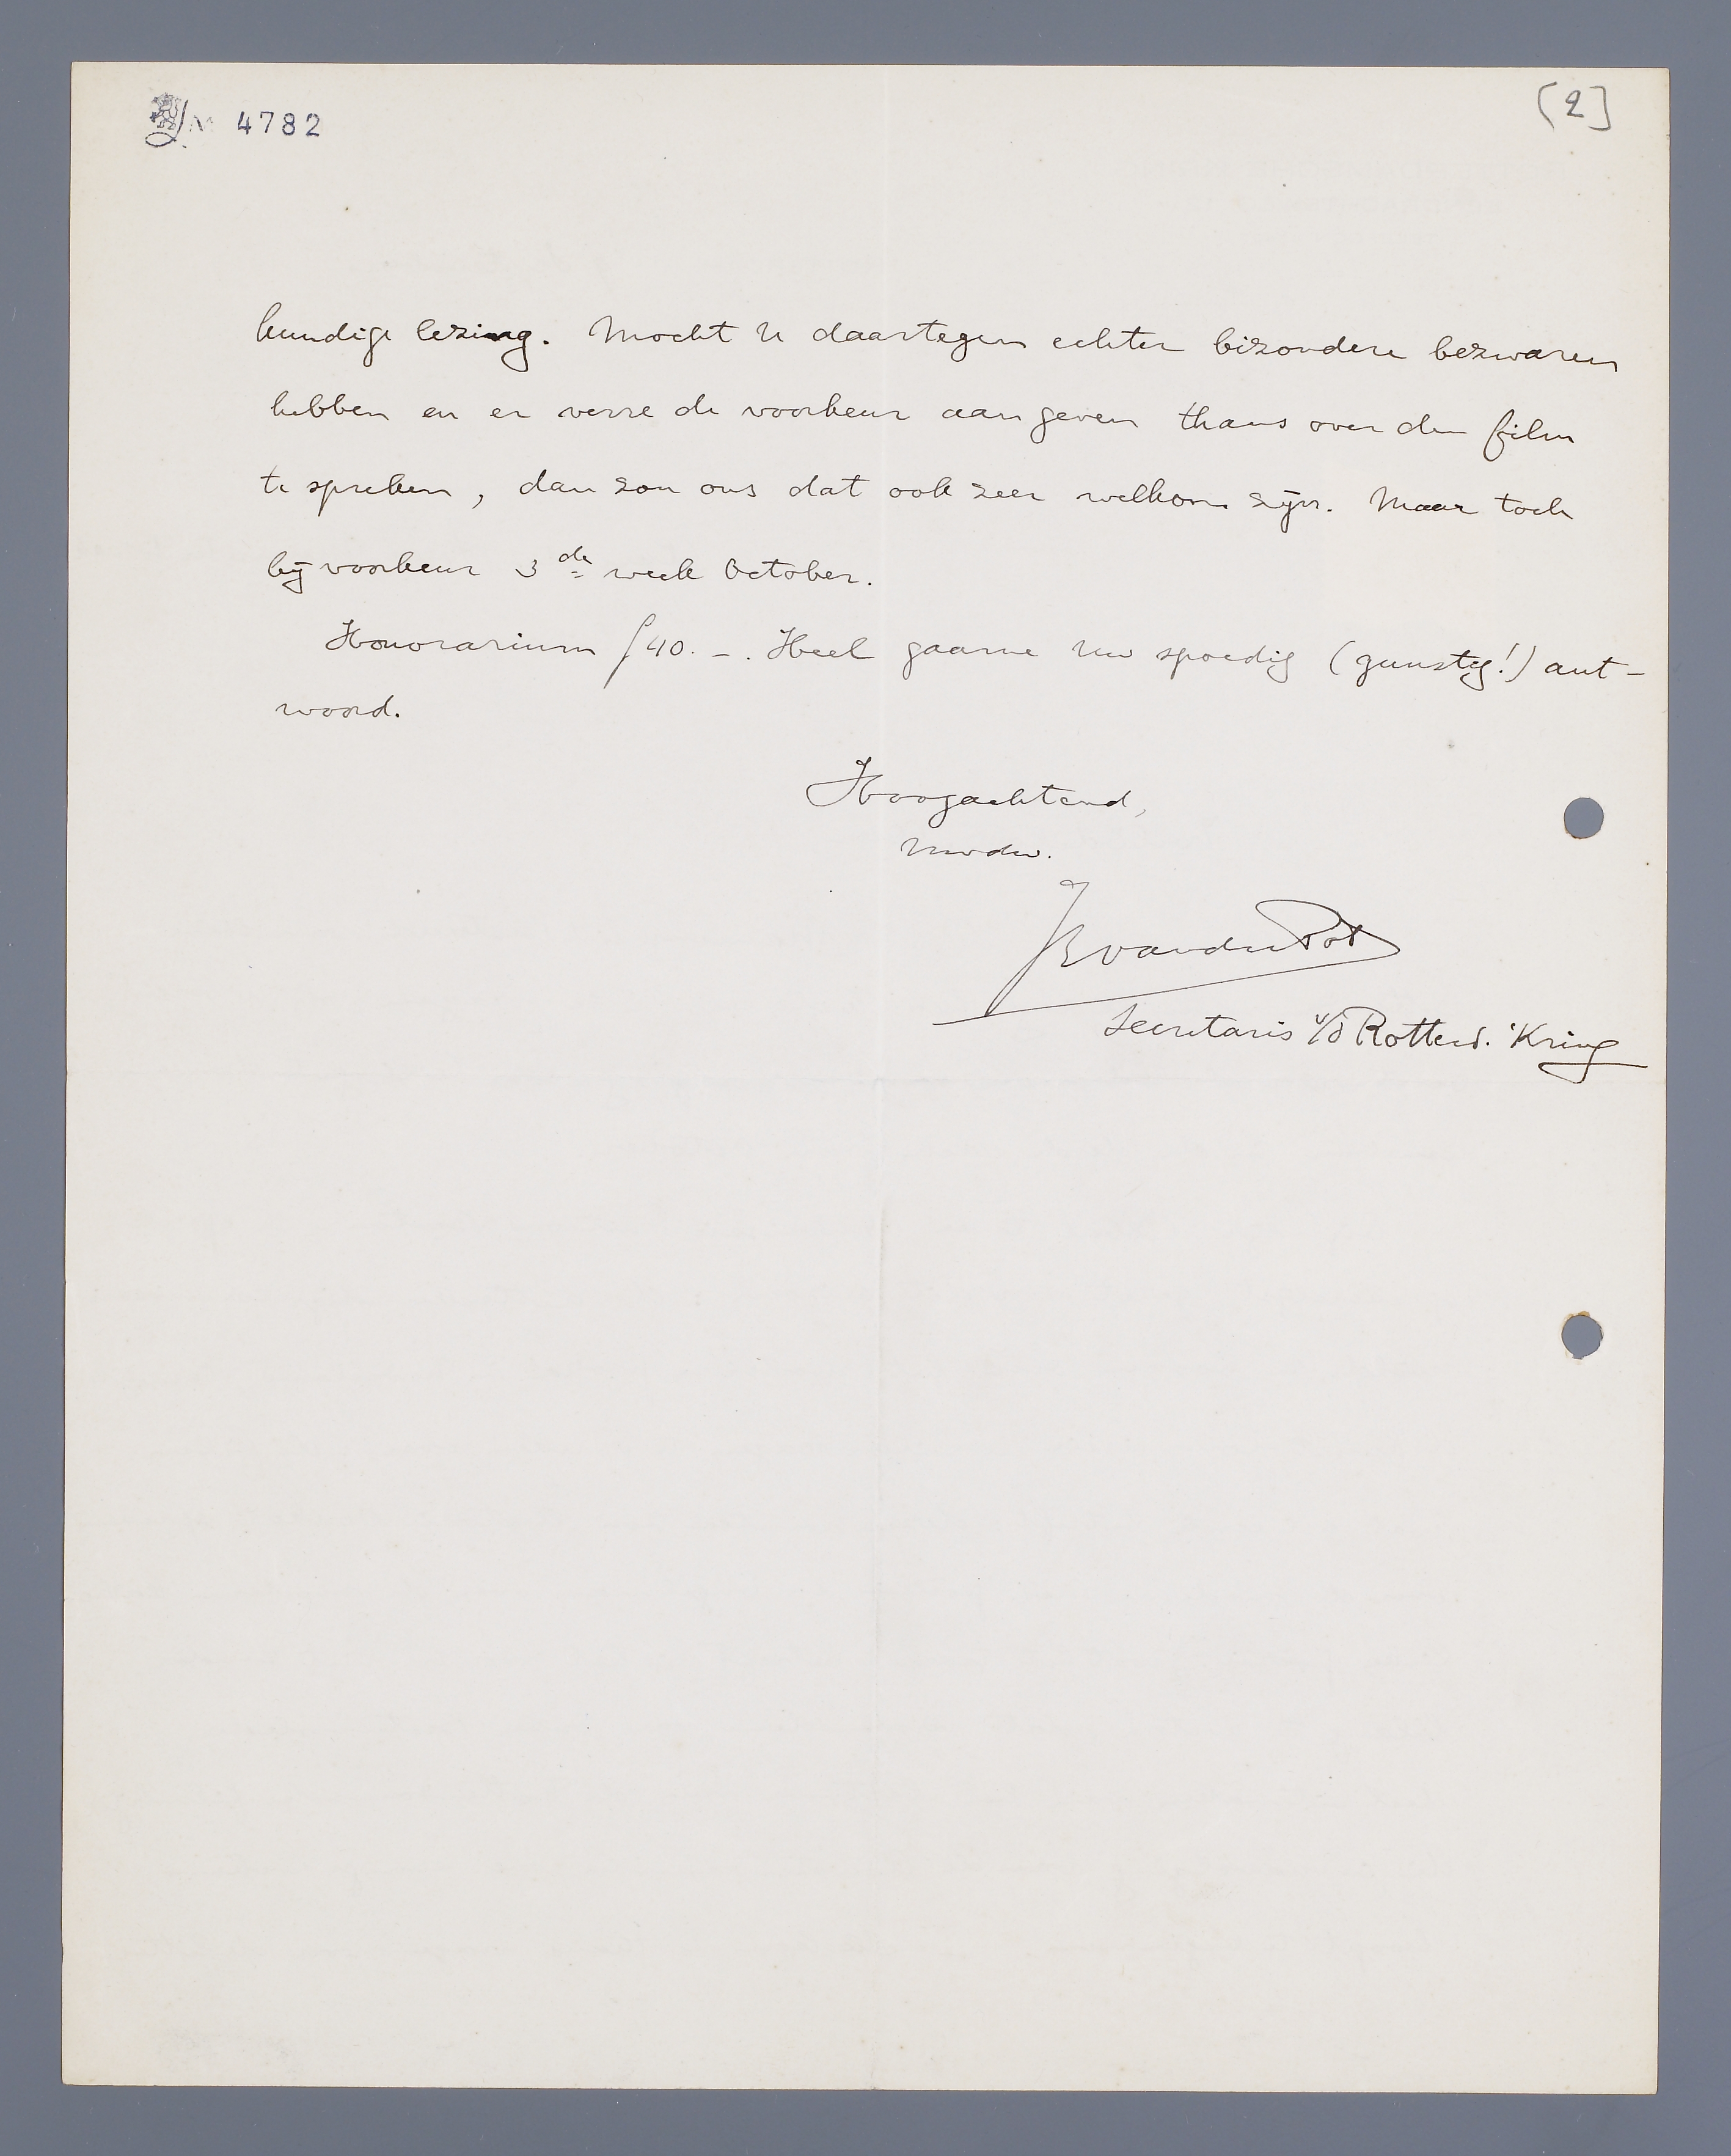 4782
[2]
kundige lezing. Mocht U daartegen echter bizondere bezwaren
hebben en er verre de voorkeur aan geven thans over den film
te spreken, dan zou ons dat ook zeer welkom zijn. Maar toch
bij voorkeur 3de week October.
Honorarium f 40.-. Heel gaarne Uw spoedig (gunstig!) ant-
woord.
Hoogachtend,
Uwdw.
JB van der Pot
Secretaris v/d Rotterd. Kring